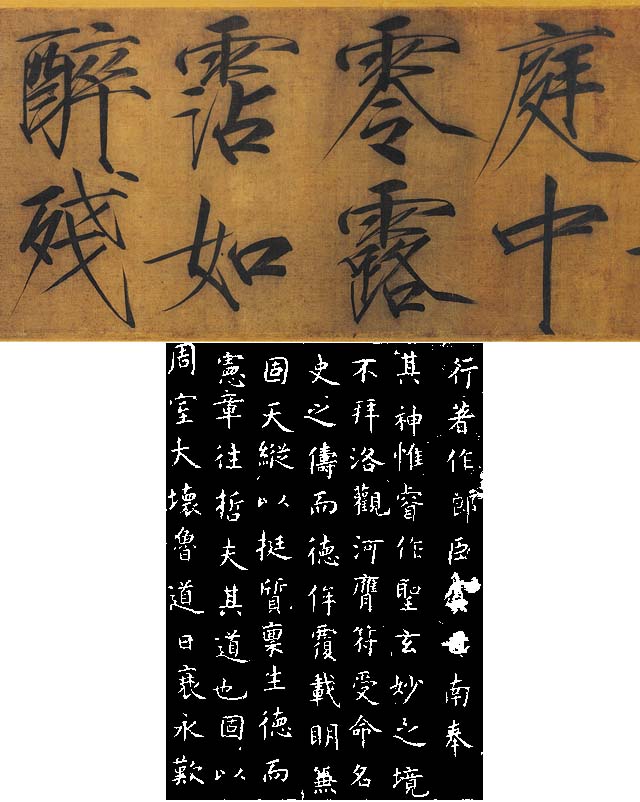 庭中
零露
霑如
醉殘
行著作郎臣世南奉
其神惟睿作聖玄妙之境
不拜洛觀河膺符受命名
史之儔而德侔覆載明無
固天縱以挺質稟生德而
憲章往哲夫其道也固以
周室大壞魯道日衰永歎